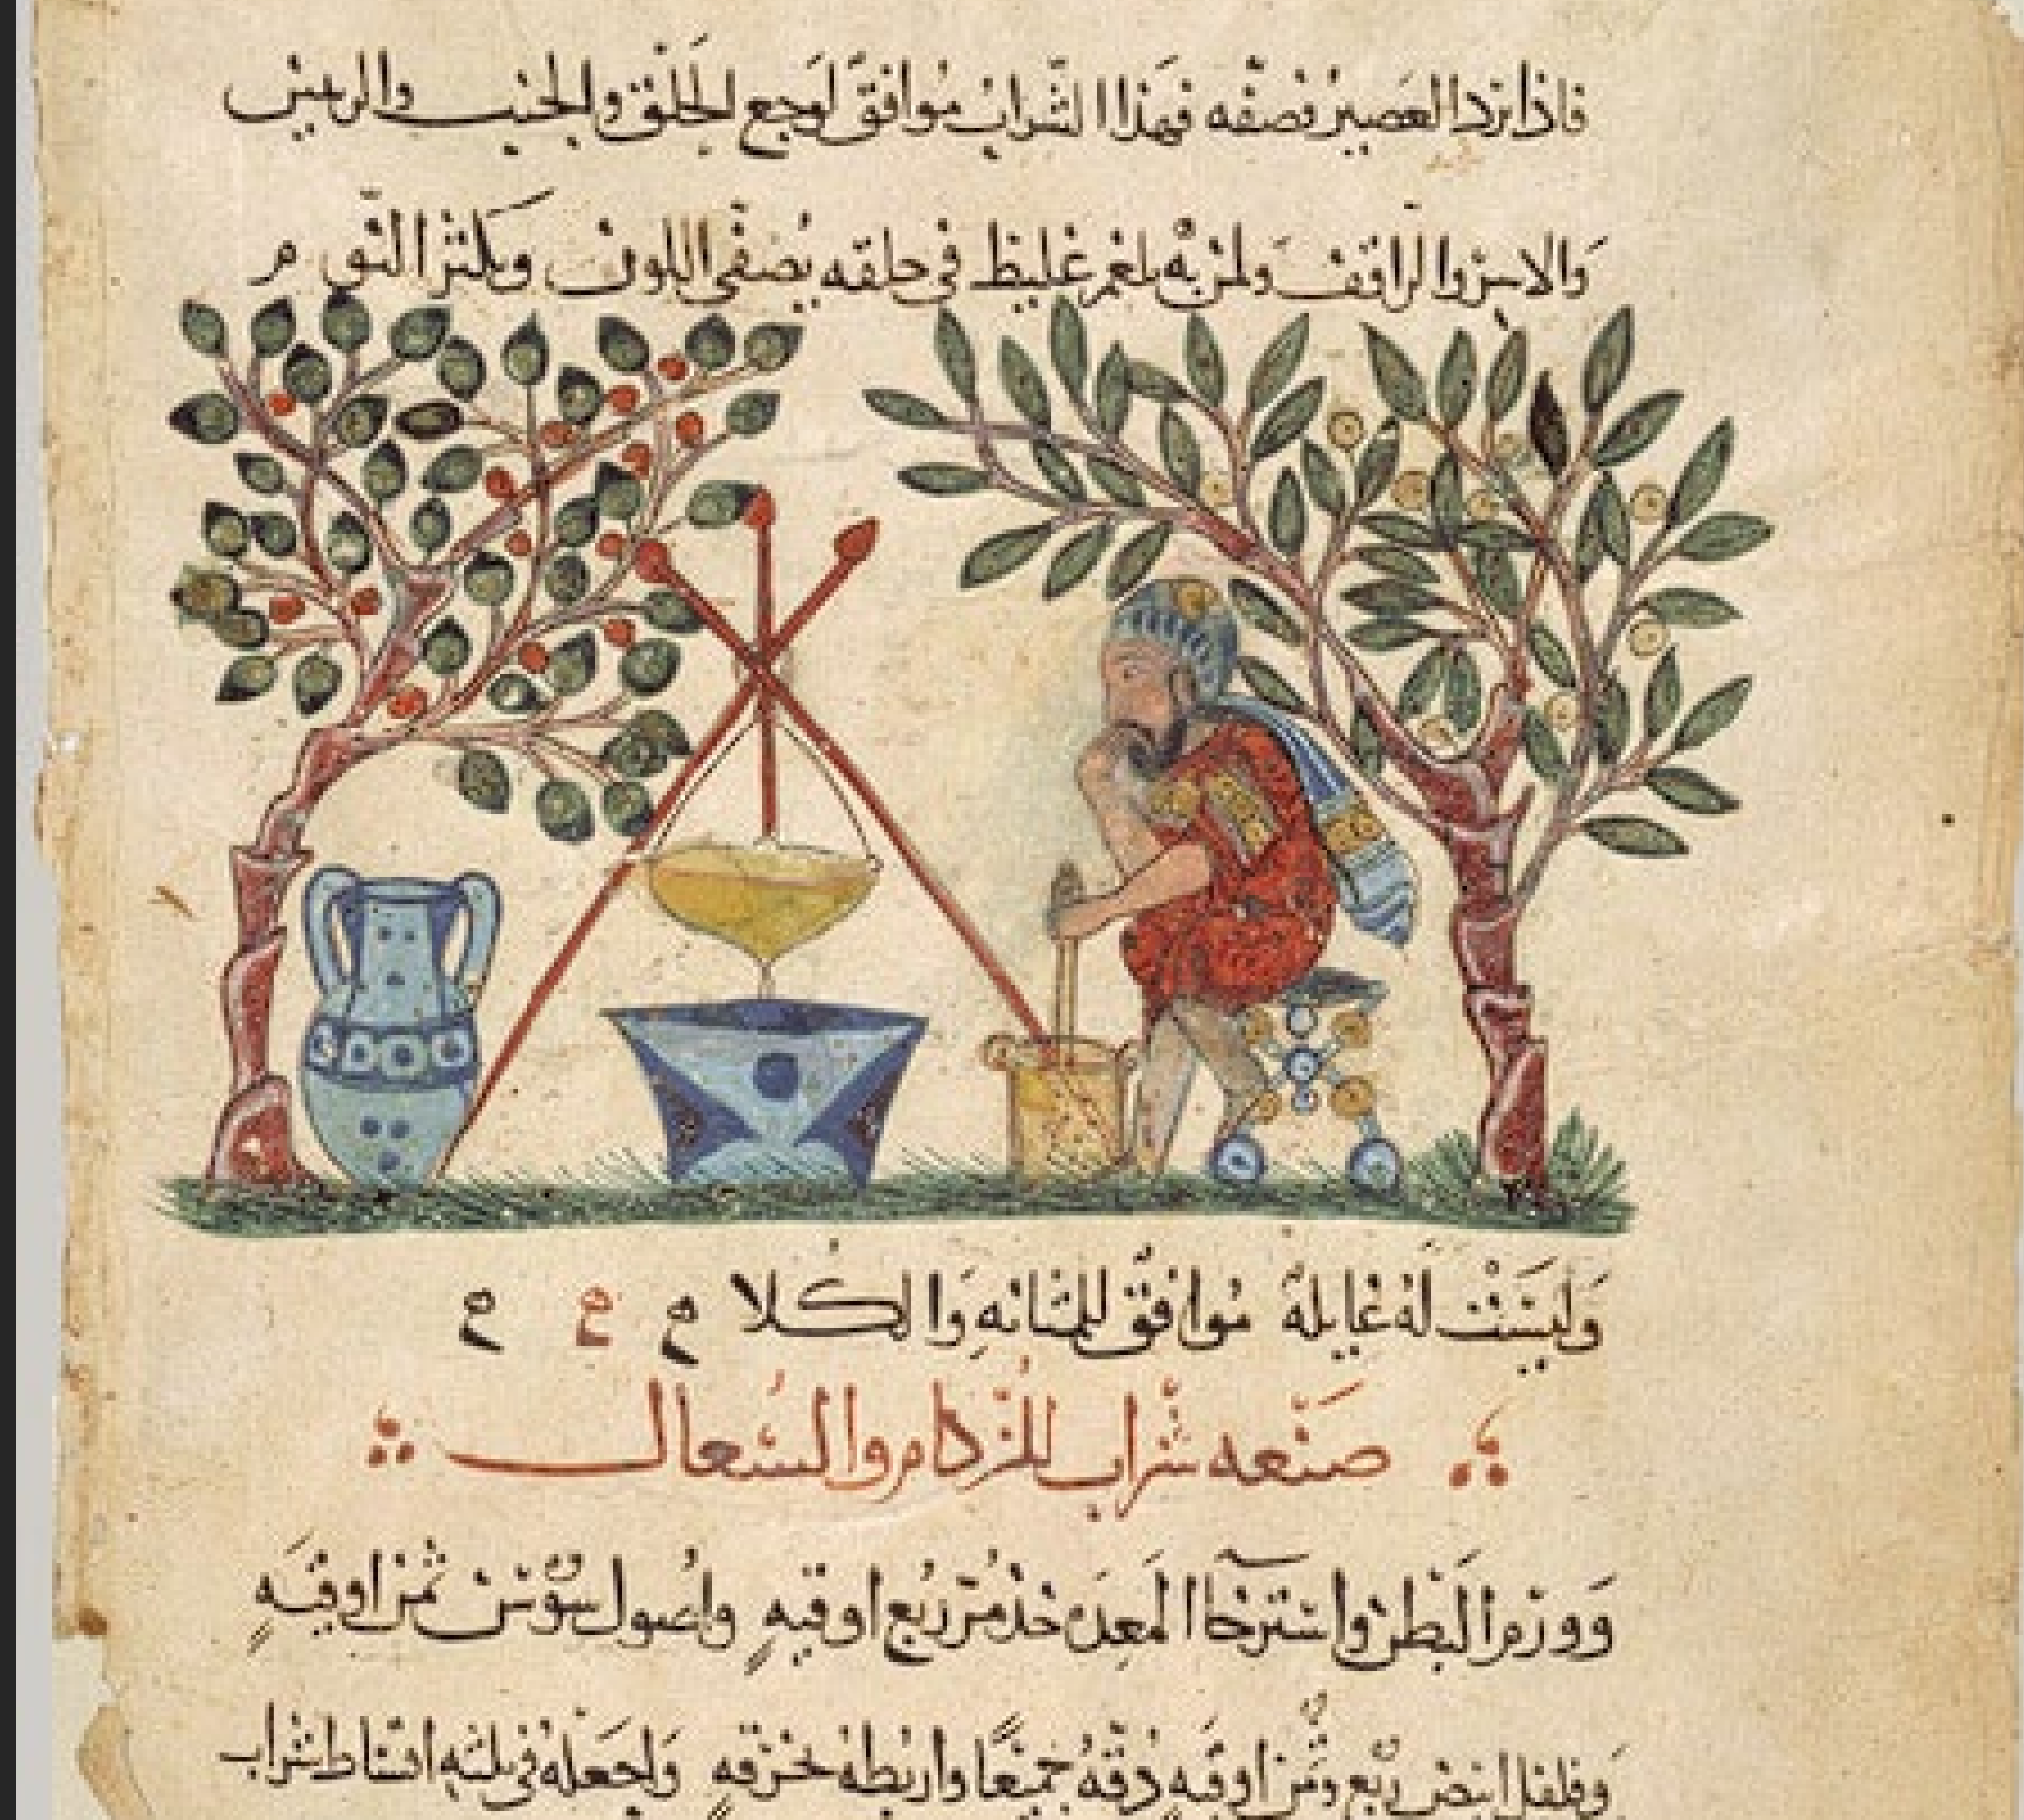 فاذا برد العصير فصفّه فهذا الشراب موافق لوجع الحلق والجنب والريتين
والاسر والراقف ولمن به بلغم غليظ في حلقه يصفي اللون ويكثر النو م
وَليسَتْ لهُ غايلة موافق للمثانه والكلا ح ح ح
صنعه شراب للزكام والسعال
وورم البطن واسترخا المعده خذ مر ربع اوقيه واصول سوسن ثمن اوقيه
وفلفل ابيض ربع وثمن اوقيه دقه جميعًا واربطه بخرقه واجعله في ثلثه اقساط شراب